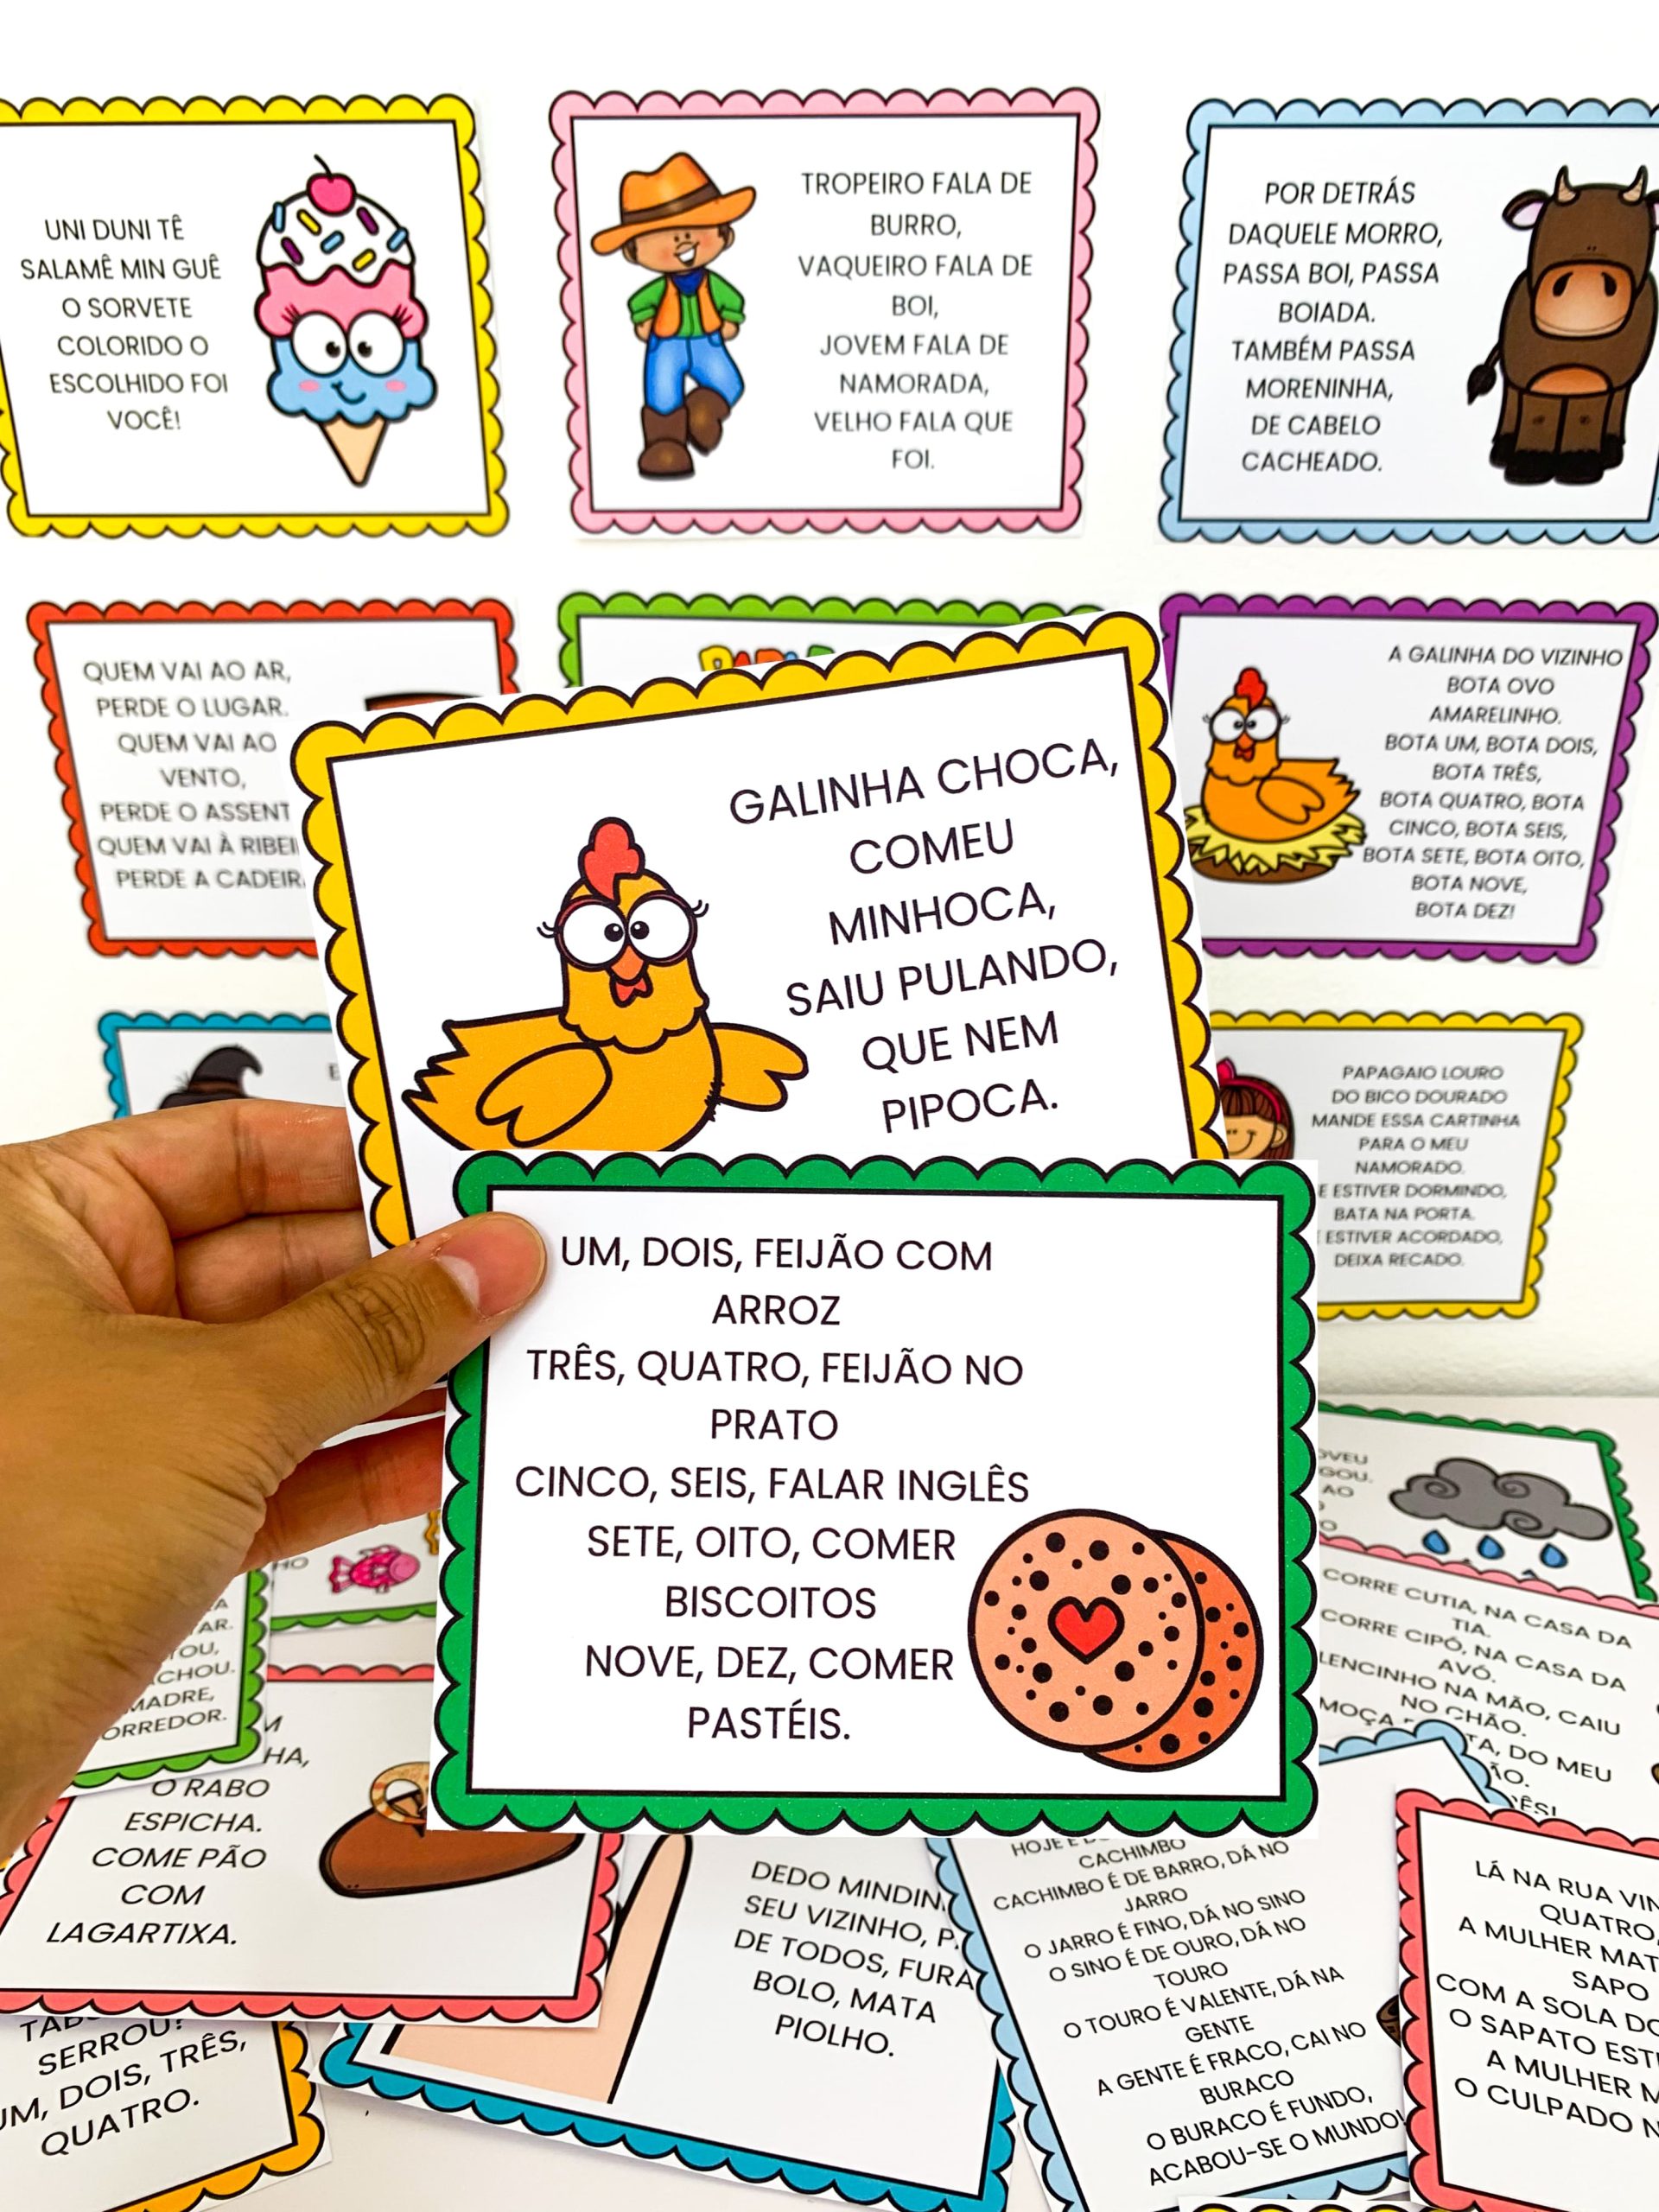 UNI DUNI TÊ
SALAMÊ MIN GUÊ
O SORVETE
COLORIDO O
ESCOLHIDO FOI
VOCÊ!
TROPEIRO FALA DE
BURRO,
VAQUEIRO FALA DE
BOI,
JOVEM FALA DE
NAMORADA,
VELHO FALA QUE
FOI.
POR DETRÁS
DAQUELE MORRO,
PASSA BOI, PASSA
BOIADA.
TAMBÉM PASSA
MORENINHA,
DE CABELO
CACHEADO.
QUEM VAI AO AR,
PERDE O LUGAR.
QUEM VAI AO
VENTO,
PERDE O ASSENT
QUEM VAI À RIBEI
PERDE A CADEIR
A GALINHA DO VIZINHO
BOTA OVO
AMARELINHO.
BOTA UM, BOTA DOIS,
BOTA TRÊS,
BOTA QUATRO, BOTA
CINCO, BOTA SEIS,
BOTA SETE, BOTA OITO,
BOTA NOVE,
BOTA DEZ!
GALINHA CHOCA,
COMEU
MINHOCA,
SAIU PULANDO,
QUE NEM
PIPOCA.
PAPAGAIO LOURO
DO BICO DOURADO
MANDE ESSA CARTINHA
PARA O MEU
NAMORADO.
E ESTIVER DORMINDO,
BATA NA PORTA.
E ESTIVER ACORDADO,
DEIXA RECADO.
UM, DOIS, FEIJÃO COM
ARROZ
TRÊS, QUATRO, FEIJÃO NO
PRATO
CINCO, SEIS, FALAR INGLÊS
SETE, OITO, COMER
BISCOITOS
NOVE, DEZ, COMER
PASTÉIS.
OVEU
GOU.
AO
O
CORRE CUTIA, NA CASA DA
TIA.
CORRE CIPÓ, NA CASA DA
AVÓ.
LENCINHO NA MÃO, CAIU
NO CHÃO.
MOÇA
TA, DO MEU
ÃO.
ÊS!
HO
AR.
TOU,
CHOU.
MADRE,
ORREDOR.
M
HA,
O RABO
ESPICHA.
COME PÃO
COM
LAGARTIXA.
SERROU?
UM, DOIS, TRÊS,
QUATRO.
DEDO MINDIN
SEU VIZINHO, P
DE TODOS, FURA
BOLO, MATA
PIOLHO.
HOJE É
CACHIMBO
CACHIMBO É DE BARRO, DÁ NO
JARRO
O JARRO É FINO, DÁ NO SINO
O SINO É DE OURO, DÁ NO
TOURO
O TOURO É VALENTE, DÁ NA
GENTE
A GENTE É FRACO, CAI NO
BURACO
O BURACO É FUNDO,
ACABOU-SE O MUNDO!
LÁ NA RUA VIN
QUATRO,
A MULHER MAT
SAPO
COM A SOLA DO
O SAPATO EST
A MULHER M
O CULPADO N